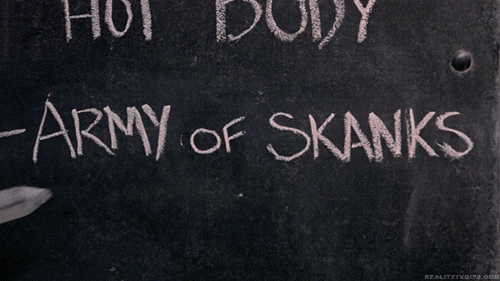 HOT BODY
- ARMY OF SKANKS
REALITYTVGIFS.COM